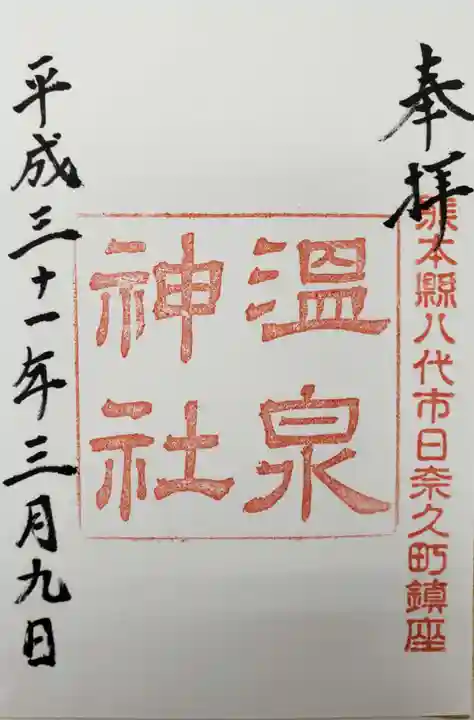 奉拝
熊本縣八代市日奈久町鎮座
温泉
神社
平成三十一年三月九日